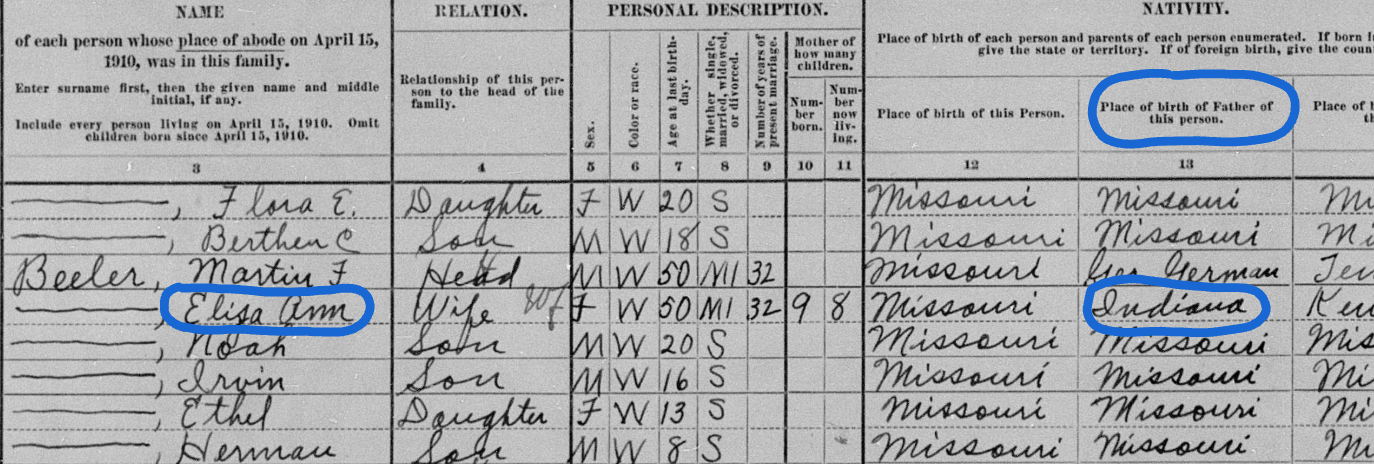 NAME
of each person whose place of abode on April 15,
1910, was in this family.
Enter surname first, then the given name and middle
initial, if any.
Include every person living on April 15, 1910. Omit
children born since April 15, 1910.
3
RELATION.
Relationship of this per-
son to the head of the
family.
4
PERSONAL DESCRIPTION.
Sex.
5
Color or race.
6
Age at last birth-
day.
7
Whether single,
married, widowed,
or divorced.
8
Number of years of
present marriage.
9
Mother of
how many
children.
Num-
ber
born.
10
Num-
ber
now
liv-
ing.
11
NATIVITY.
Place of birth of each person and parents of each person enumerated. If born
give the state or territory. If of foreign birth, give the
Place of birth of this Person.
12
Place of birth of Father of
this person.
13
Place of
, Flora E. Daughter F W 20 S Missouri Missouri
, Berthen C Son M W 18 S Missouri Missouri
Beeler, Martin F Head M W 50 M1 32 Missouri Ger German
, Elisa Ann Wife F W 50 M1 32 9 8 Missouri Indiana
, Noah Son M W 20 S Missouri Missouri
, Irvin Son M W 16 S Missouri Missouri
, Ethel Daughter F W 13 S Missouri Missouri
, Herman Son M W 8 S Missouri Missouri